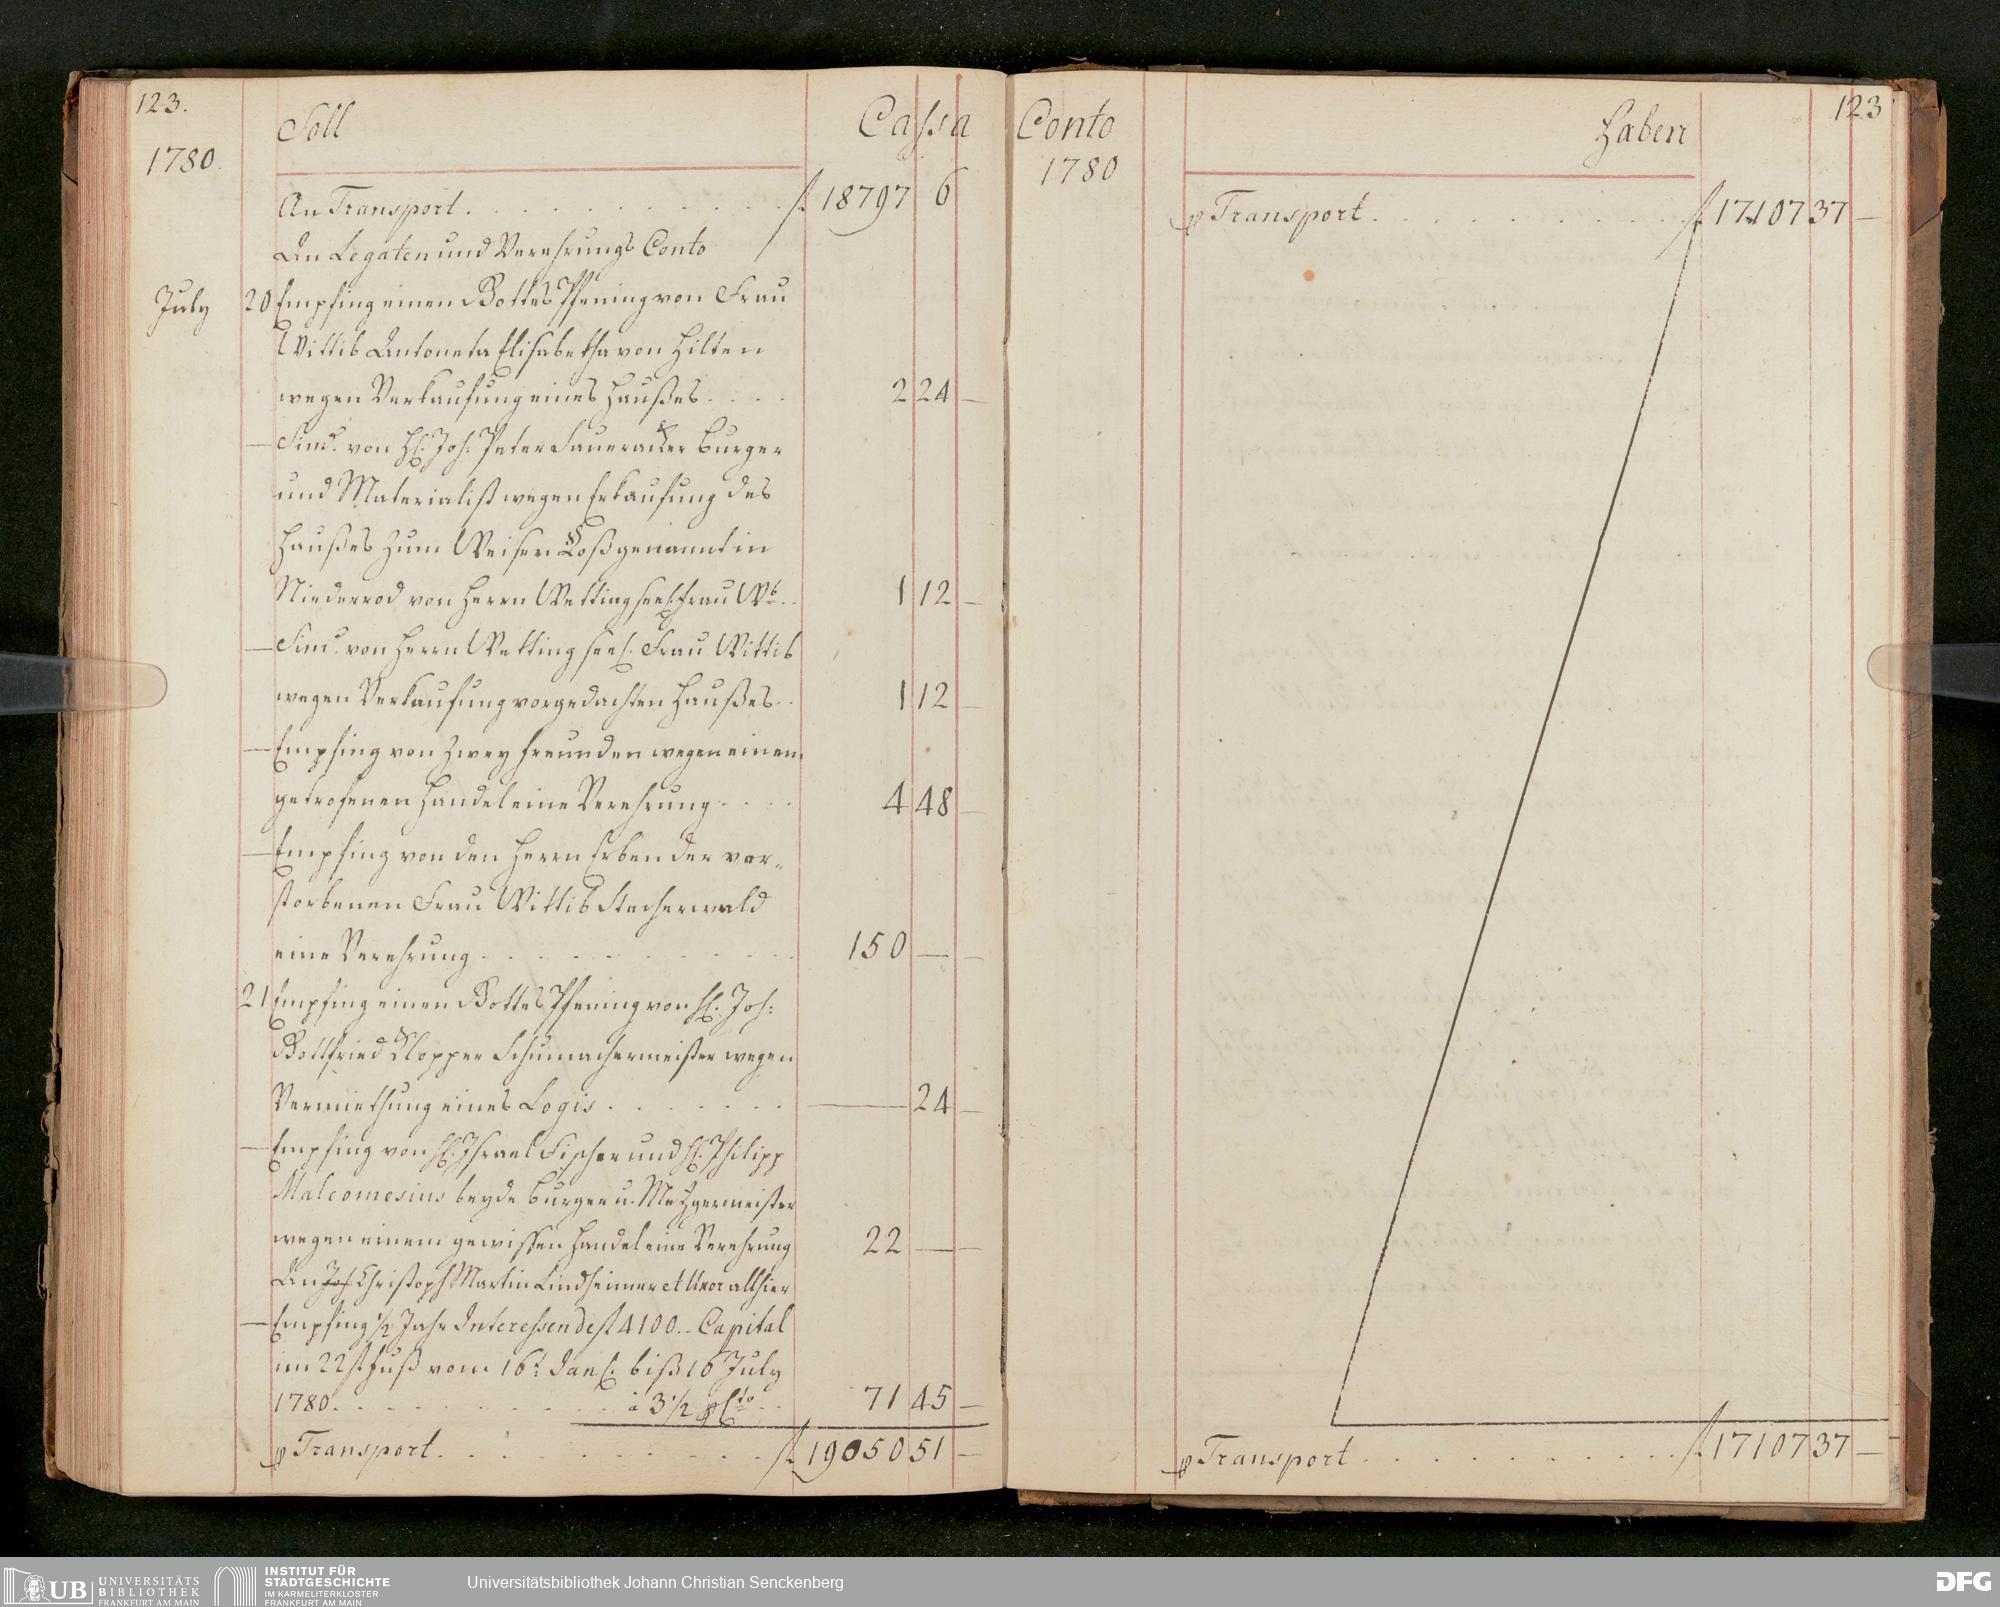 123.
Soll Cassa
1780.
An Transport . . . . . . . . . . . f 18797 6
An Legaten und Verehrungs Conto
July 20 Empfing einen Gottes Pfening von Frau
Wittib Antoneta Elisabetha von Hilten
wegen Verkaufung eines Haußes . . . . 2 24 —
— Dim. von H. Joh. Peter Saueracker Burger
und Materialist wegen Erkaufung des
Haußes zum Weisen Roß genannt in
Niederrod von Herrn Wetting seel. Frau Wb. . 1 12 —
— Dim. von Herrn Wetting seel. Frau Wittib
wegen Verkaufung vorgedachten Haußes . . 1 12 —
— Empfing von zwey freunden wegen einen
getrofenen Handel eine Verehrung . . . . 4 48 —
— Empfing von den Herrn Erben der ver„
storbenen Frau Wittib Stecherwald
eine Verehrung . . . . . . . . . . 150 — —
21 Empfing einen Gottes Pfening von H. Joh:
Gottfried Klopper Schumachermeister wegen
Vermiethung eines Logis . . . . . . . — 24 —
— Empfing von H. Israel Fischer und H. Philipp
Malcomesius beyde Burger u. Metzgermeister
wegen einem gewissen Handel eine Verehrung 22 — —
An Joh Christoph Martin Lindheimer et Uxor allhier
— Empfing ½ Jahr Interessen de f 4100.. Capital
im 22 f. fuß vom 16t. Jan. biß 16 July
1780. . . . . . . . . . . à 3 ½ p Cto . . 71 45 —
p Transport . . . . . . . . . . . f 19050 51 —
123
Conto Haben
1780
p Transport . . . . . . . . . . . f 17107 37 —
p Transport . . . . . . . . . . . f 17107 37 —
UB UNIVERSITÄTS
BIBLIOTHEK
FRANKFURT AM MAIN
INSTITUT FÜR
STADTGESCHICHTE
IM KARMELITERKLOSTER
FRANKFURT AM MAIN
Universitätsbibliothek Johann Christian Senckenberg
DFG